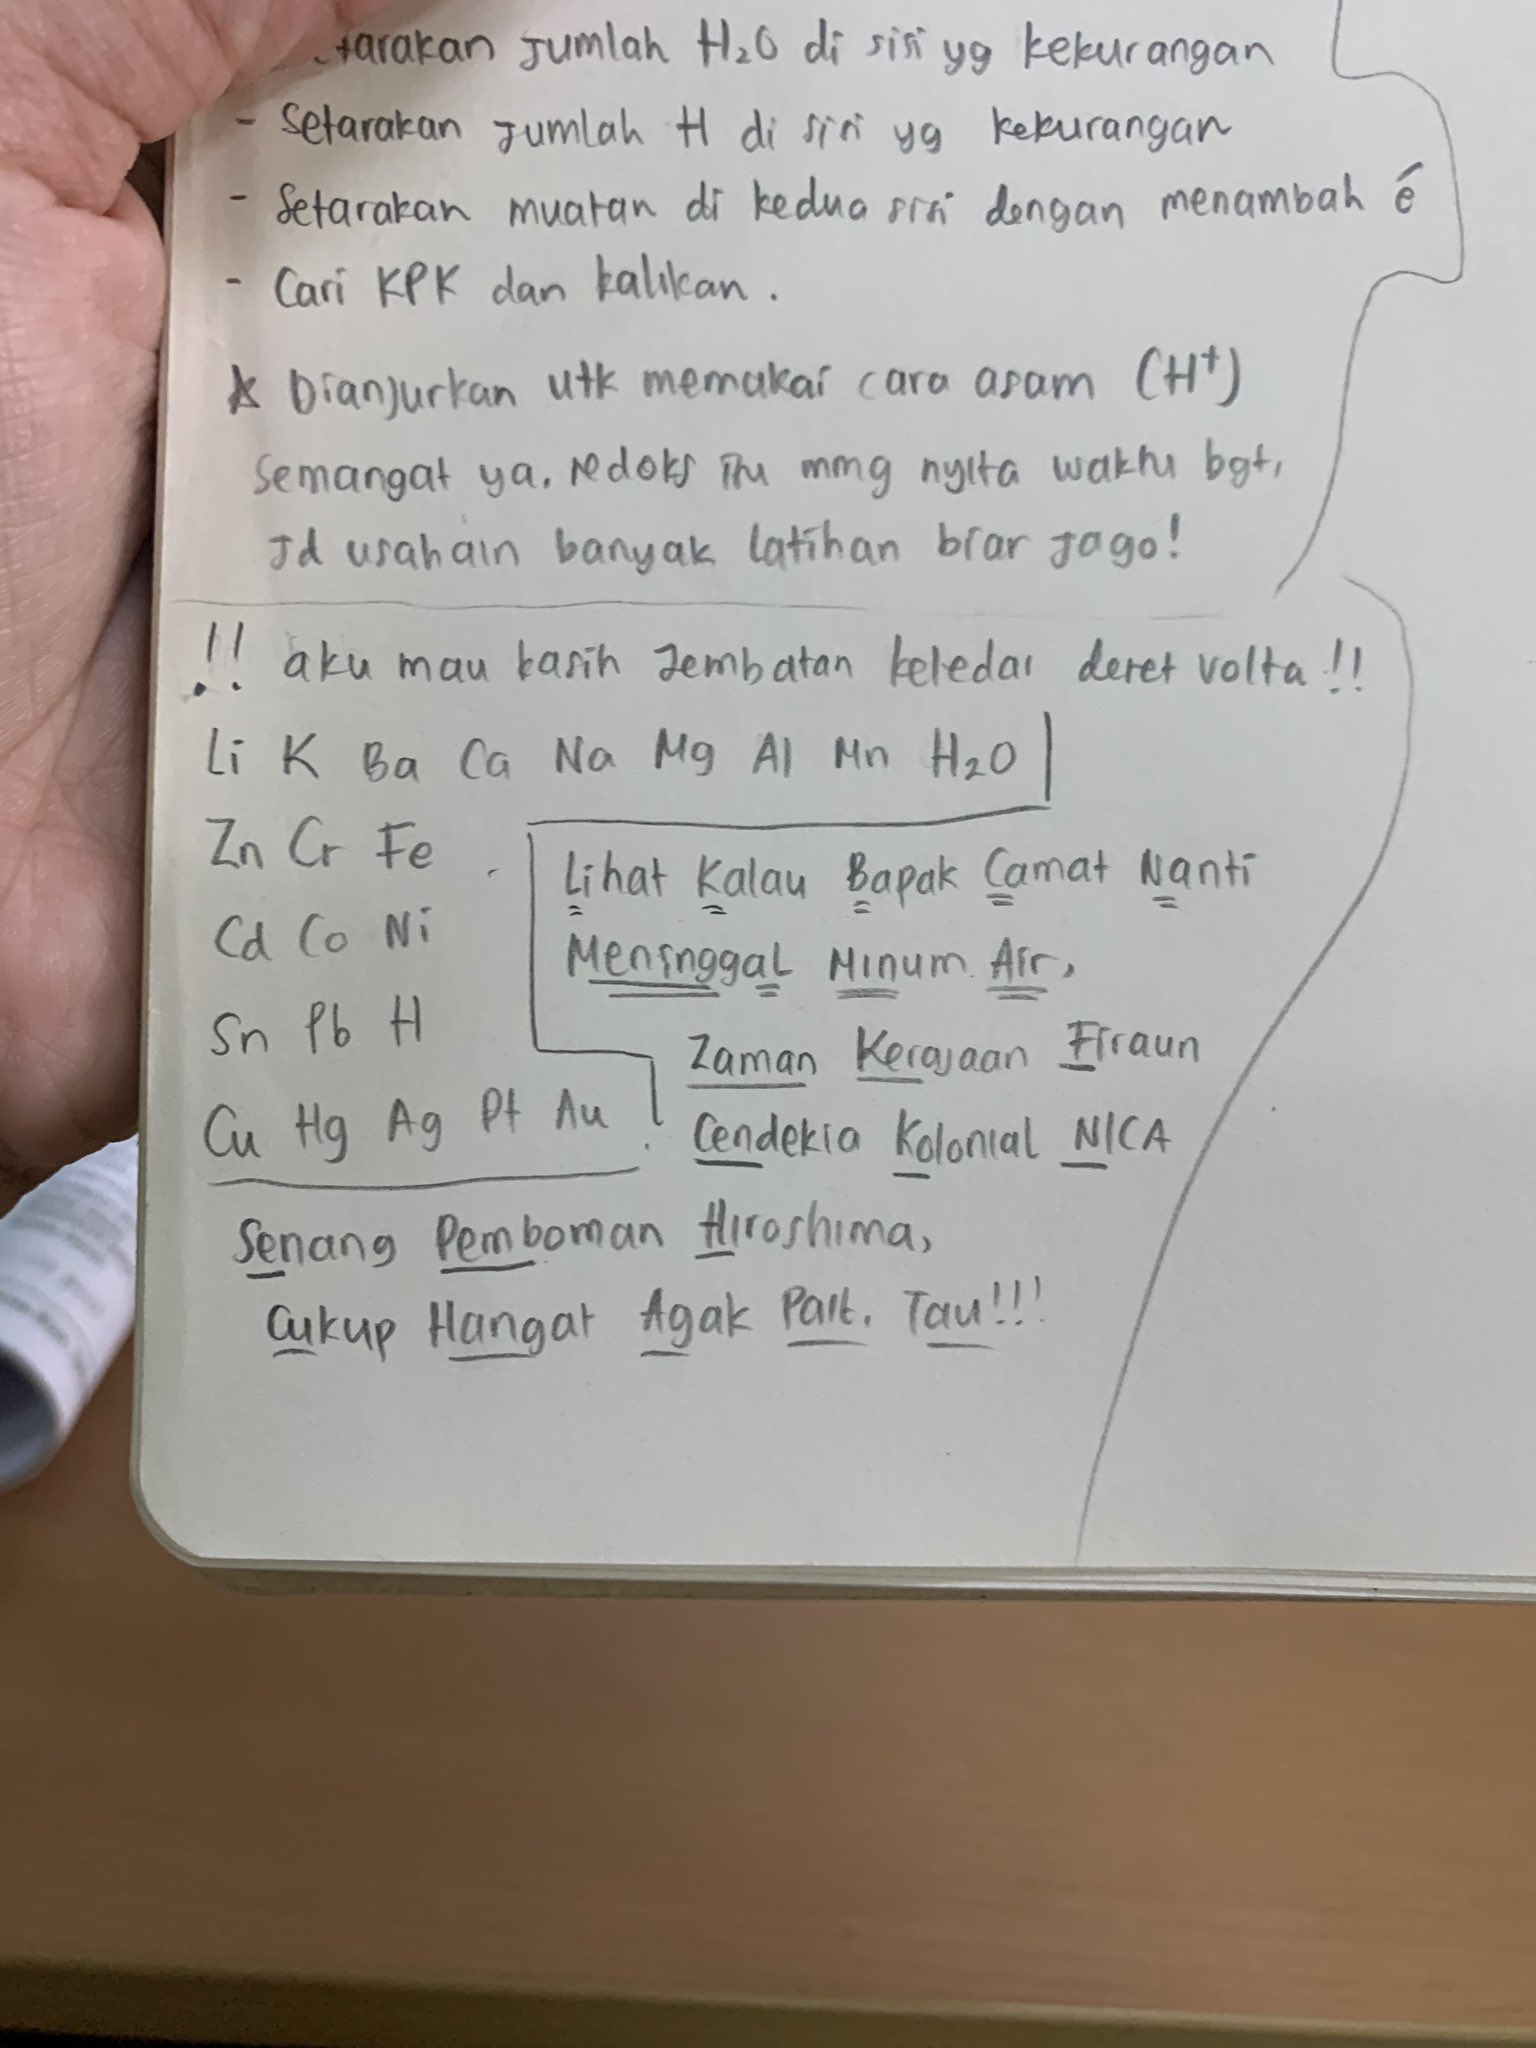 Setarakan Jumlah H₂O di sisi yg kekurangan
- Setarakan Jumlah H di sisi yg kekurangan
- Setarakan muatan di kedua sisi dengan menambah é
- Cari KPK dan kalikan.
☆ Dianjurkan utk memakai cara asam (H⁺)
Semangat ya. redoks itu mmg nyita waktu bgt,
Jd usahain banyak latihan biar jago!
!! aku mau kasih Jembatan keledai deret volta !!
Li K Ba Ca Na Mg Al Mn H₂O
Zn Cr Fe
Cd Co Ni
Sn Pb H
Cu Hg Ag Pt Au
Lihat Kalau Bapak Camat Nanti
Meninggal Minum Air,
Zaman Kerajaan Firaun
Cendekia Kolonial NICA
Senang Pemboman Hiroshima,
Cukup Hangat Agak Pait. Tau!!!